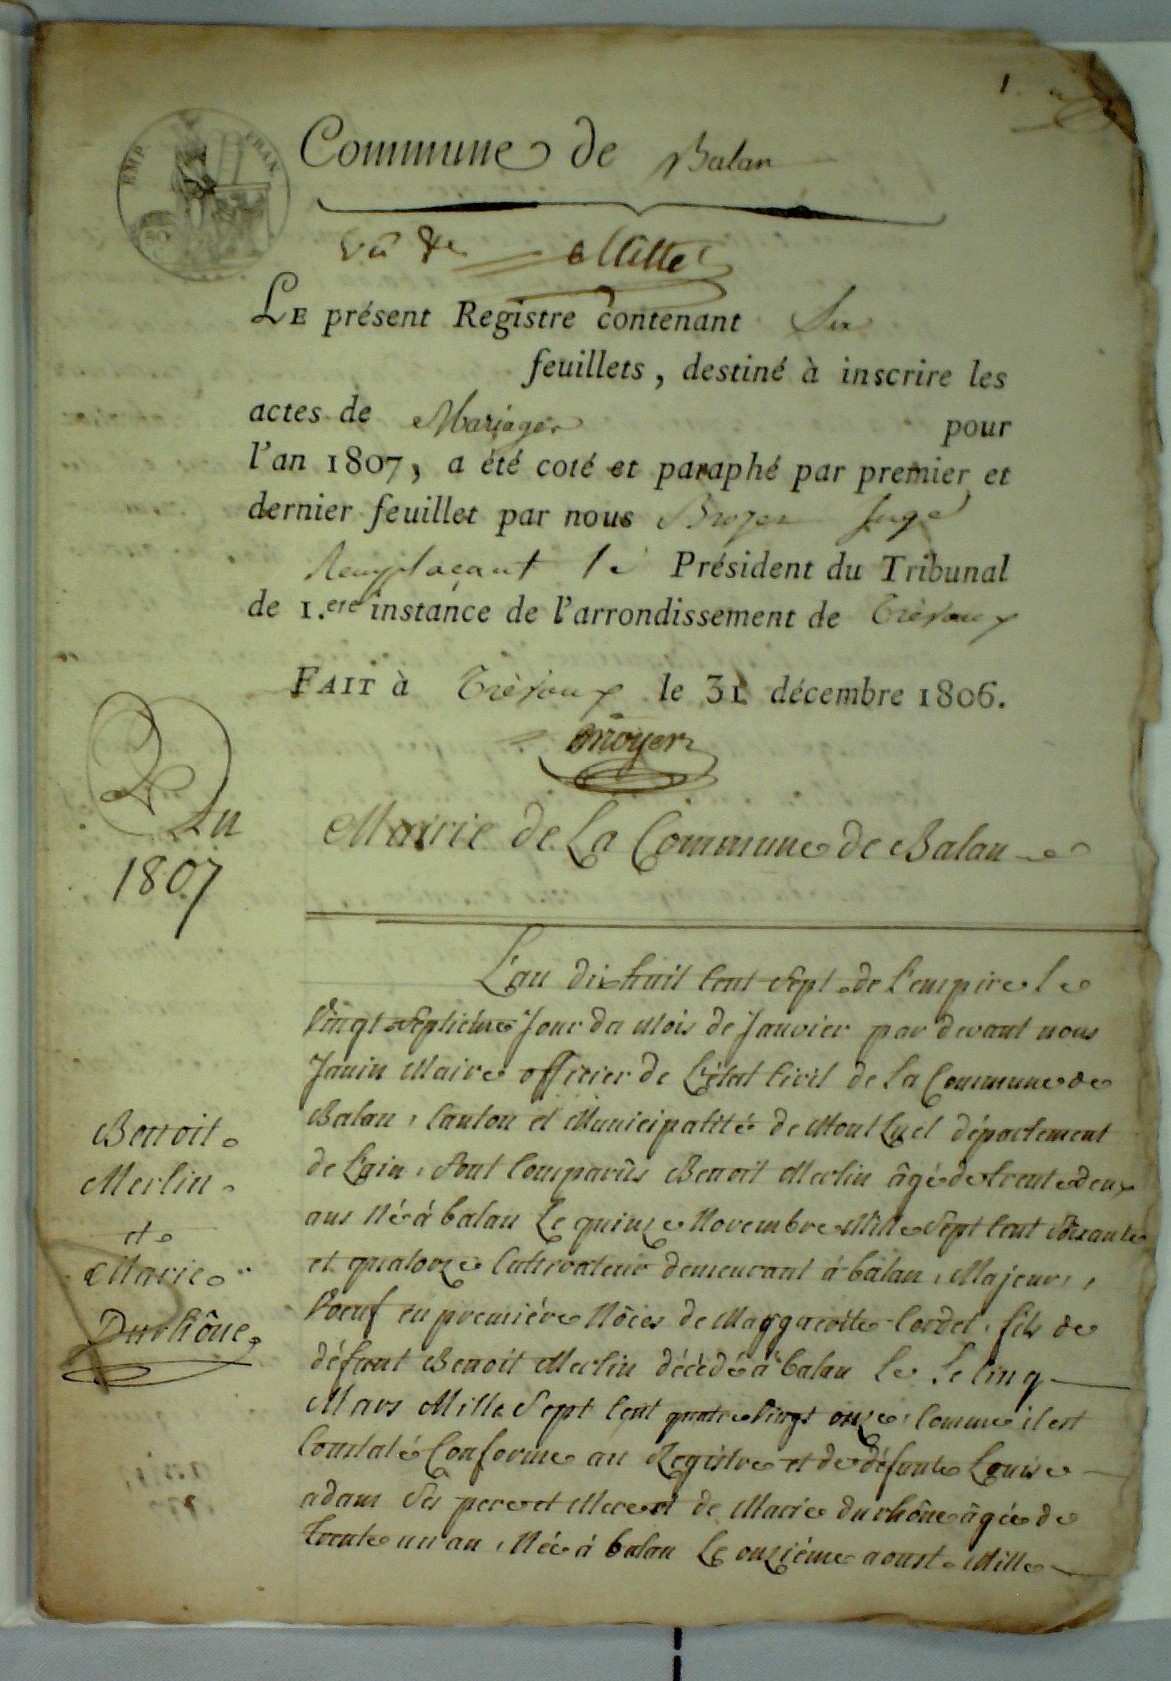 1.
EMP. FRAN.
Commune de Balan
Vu &c Millet
LE présent Registre contenant Six
feuillets, destiné à inscrire les
actes de Mariages pour
l'an 1807, a été coté et paraphé par premier et
dernier feuillet par nous Broyer Juge
Remplaçant le Président du Tribunal
de 1.ere instance de l'arrondissement de Trévoux
FAIT à Trévoux le 31 décembre 1806.
Broyer
Du
1807
Mairie de La Commune de Balan
L'an dix huit Cent Sept de L'empire Le
Vingt Septieme Jour du Mois de Janvier par devant nous
Janin Maire officier de L'état Civil de La Commune de
Balan, Canton et Municipalité de Mont Luel département
de Lain, Sont Comparûs Benoit Merlin âgé de trente deux
ans Né à balan Le quinze Novembre Mille Sept Cent Soixante
et quatorze Cultivateur demeurant à balan, Majeur,
Voeuf en premiére Nôces de Marguerite Cordel, fils de
défunt Benoit Merlin décédé à balan le Le Cinq
Mars Mille Sept Cent quatre Vingt onze, Comme il est
Constaté Conforme au Registre et de défunte Louise
adam Ses pere et Mere et de Marie durhône âgée de
trente un an, Née à balan Le onziéme aoust Mille
Benoit
Merlin
et
Marie
Durhône